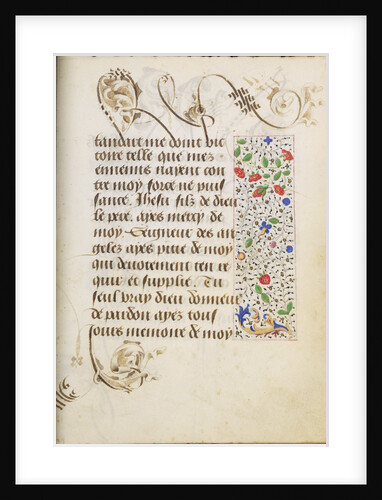 tandart me dont vic
toire telle que mes
ennemis nayent con
tre moy force ne puis
sance. Ihesu filz de dieu
le pere. ayes mercy de
moy. Seigneur des an
geles ayes pitie de moy
qui deuotement ten re
quier et supplie. Tu
seul vray dieu donneur
de pardon ayez tous
iours memoire de moy